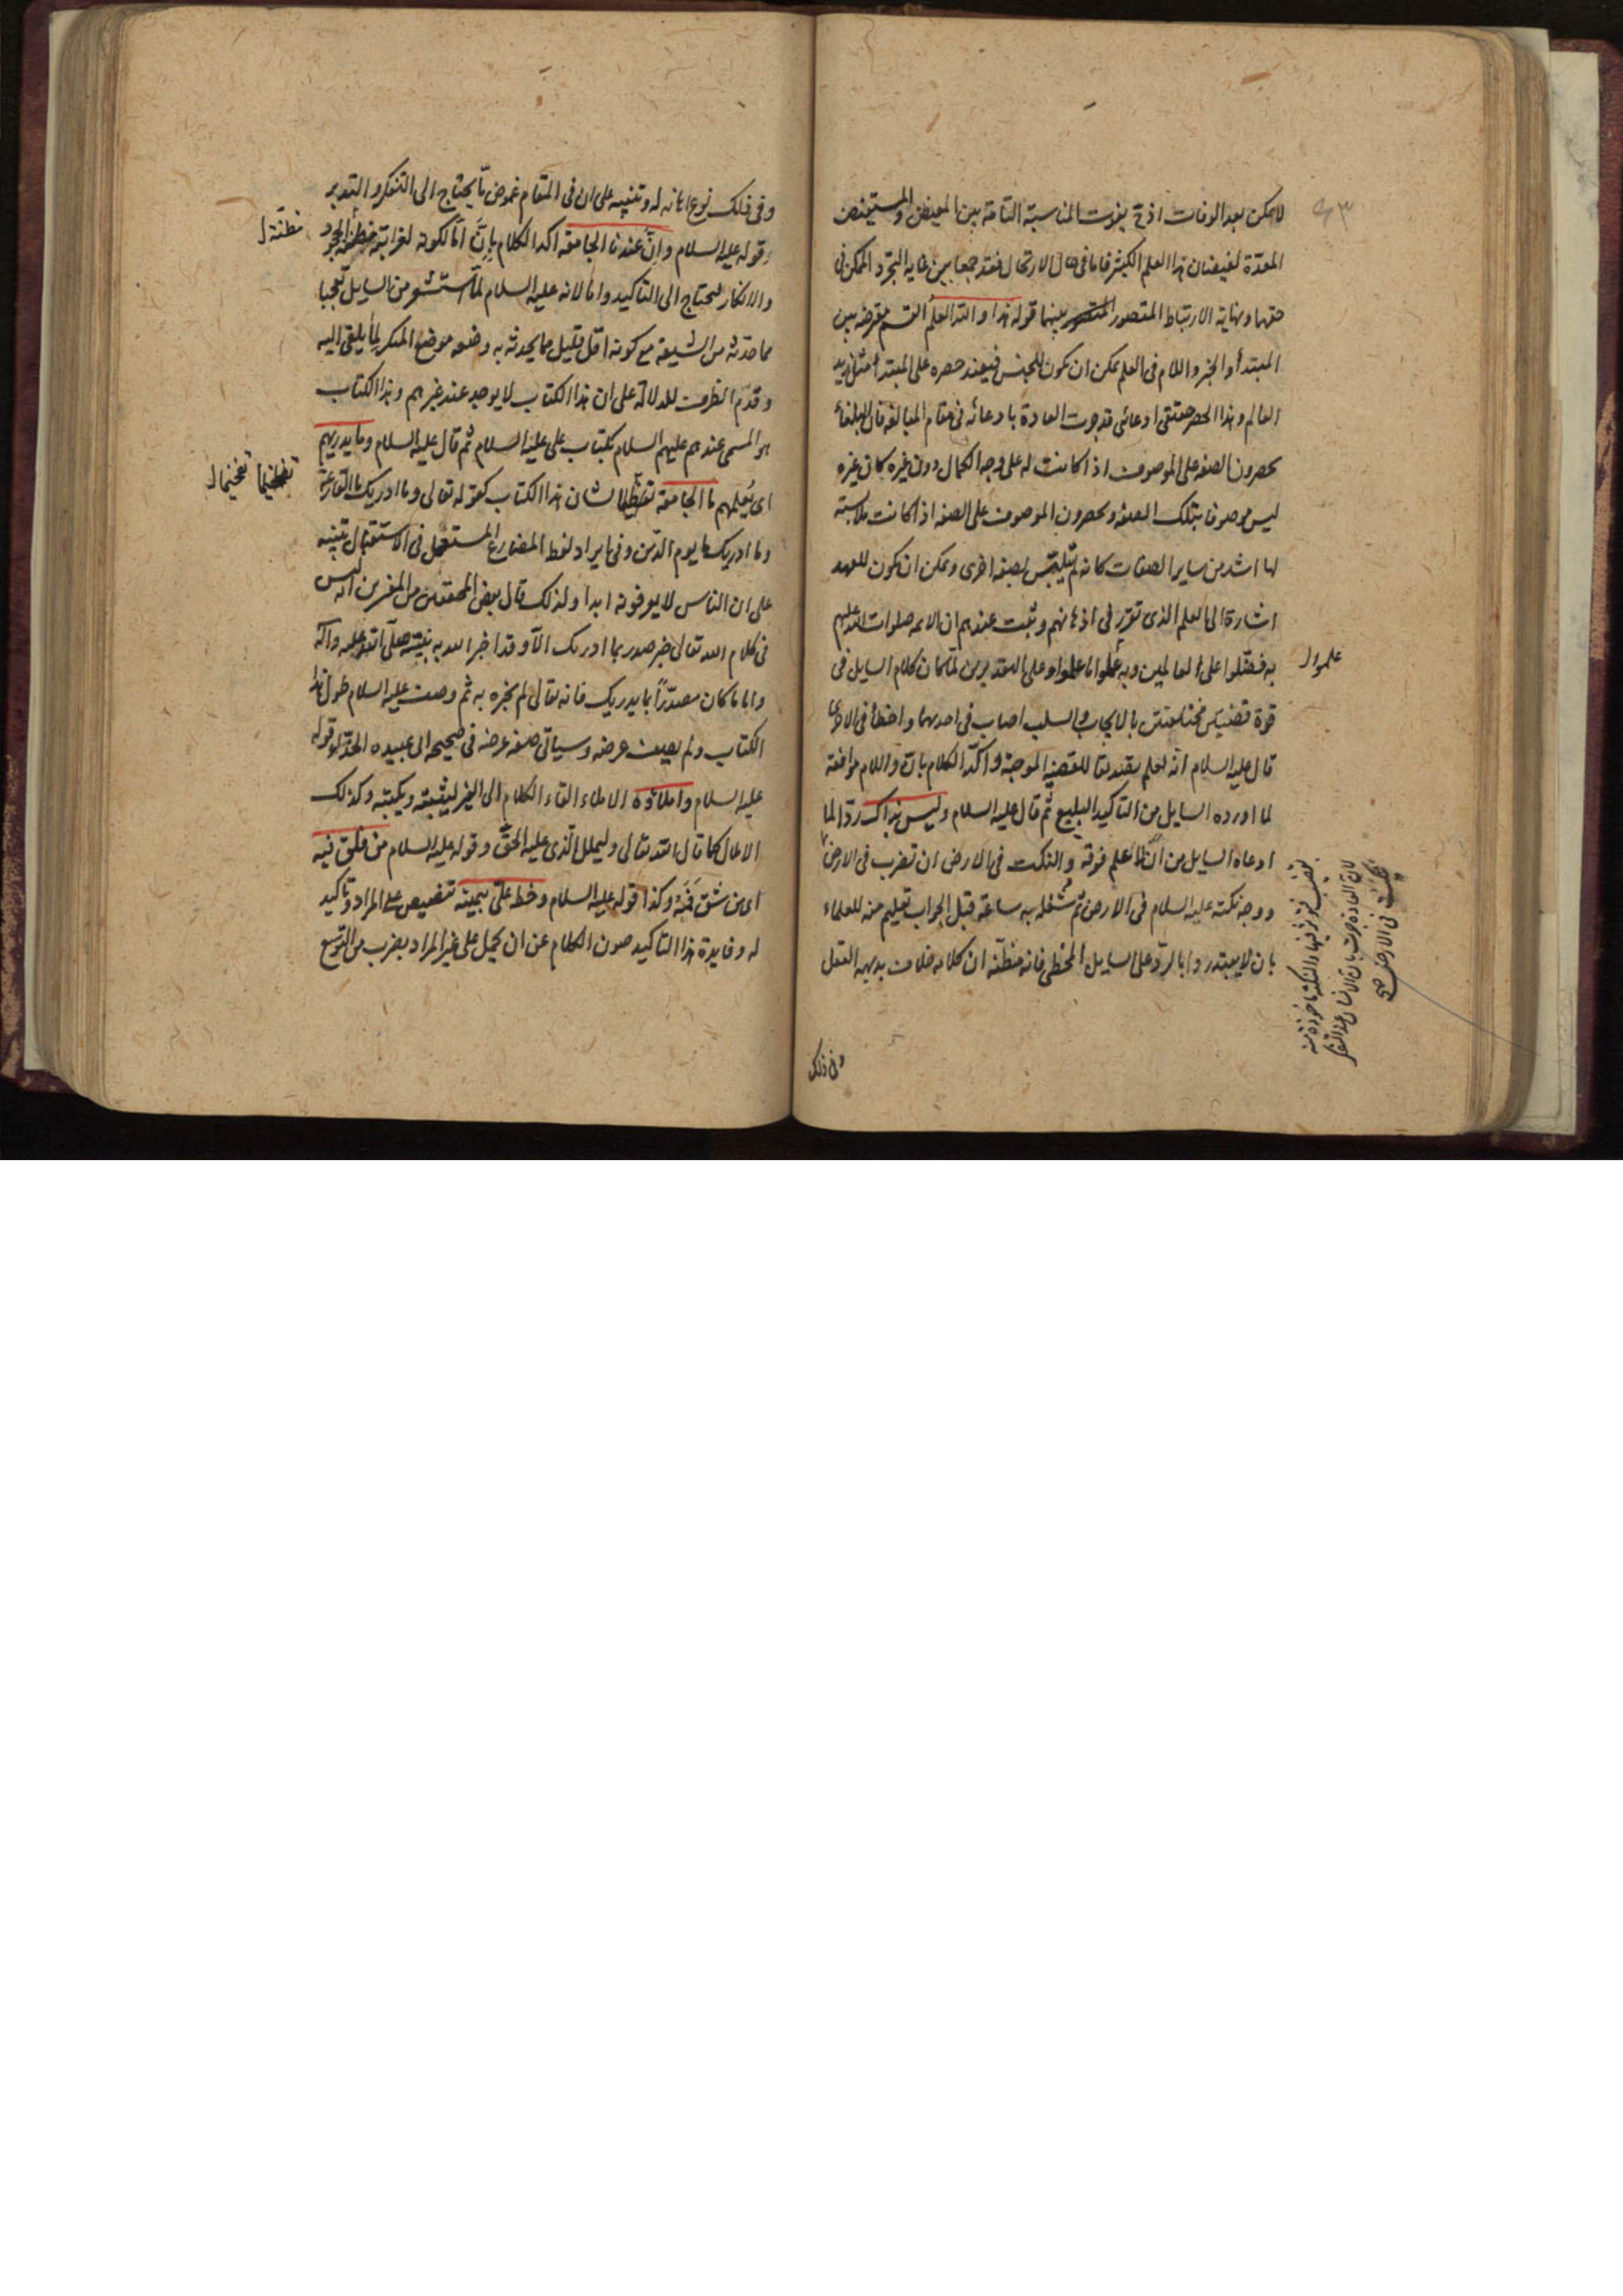 لا يمكن بعد الوفات اذ ح يفوت المناسبة التامة بين المفيض والمستفيض
المعدّة لفيضان هذا العلم الكثير فاما في حال الارتحال فقد جمعا بين غاية التجرد الممكن في
حقهما ونهاية الارتباط المتصور بينهما قوله هذا والله العلم القسم معترضة بين
المبتدأ والخبر واللام في العلم يمكن ان يكون للجنس فيفيد حصره على المبتدأ مثل زيد
العالم وهذا الحصر حقيقي ادعائي قد جرت العادة بادعائه في مقام المبالغة فان البلغاء
يحصرون الصفة على الموصوف اذا كانت له على وجه الكمال دون غيره كان غيره
ليس موصوفا بتلك الصفة ويحصرون الموصوف على الصفة اذا كانت ملابسته
لها اشد من ساير الصفات كانه لم يتلبس بصفة اخرى ويمكن ان يكون للعهد
اشارة الى العلم الذي تقرر في اذهانهم وثبت عندهم ان الائمة صلوات الله عليهم
به فضّلوا على العالمين وبه علموا ما علموا وعلى التقديرين لما كان كلام السايل في
علموا ل
قوة قضيتين مختلفتين بالايجاب والسلب اصاب في احديهما واخطأ في الاخرى
قال عليه السلام انه لعلم تصديقا للقضية الموجبة واكّد الكلام بانّ واللام موافقة
لما اورده السايل من التاكيد البليغ ثم قال عليه السلام وليس بذاك ردّا لما
ادعاه السايل من انّه لا علم فوقه والنكت في الارض ان تضرب في الارض
ووجه نكته عليه السلام في الارض ثم شغله به ساعة قبل الجواب تعليم منه للعلماء
بان لا يبتدروا بالردّ على السايل المخطي فانه مظنّة ان كلامه خلاف بديهة العقل
بقضيب فتوثر فيها والنكتة ماخوذة منه
لان العادة جرت بان الانسان عند التفكر
ينكت في الارض صح
وفي ذلك
وفي ذلك نوع اهانة له وتنبيه على ان في المقام غموض ما يحتاج الى التفكر والتدبر
وقوله عليه السلام وانّ عندنا الجامعة اكد الكلام بانّ امّا لكونه لغرابته مظنة الجحود
مظنّة ل
والانكار فيحتاج الى التاكيد واما لانه عليه السلام لمّا استشعر من السايل تعجبا
مما حدثه من الشيعة مع كونه اقل قليل مما يحدثه به وضعه موضع المنكر لما يلقى اليه
وقدّم الظرف للدلالة على ان هذا الكتاب لا يوجد عند غيرهم وهذا الكتاب
هو المسمى عندهم عليهم السلام بكتاب علي عليه السلام ثم قال عليه السلام وما يدريهم
اي يُعلمهم ما الجامعة تعظيما لشان هذا الكتاب كقوله تعالى وما ادريك ما القارعة
تفخيما تفخيما ل
وما ادريك ما يوم الدّين وفي ايراد لفظ المضارع المستعمل في الاستقبال تنبيه
على ان الناس لا يعرفونه ابدا ولذلك قال بعض المحققين من المفسرين انه ليس
في كلام الله تعالى خبر صدر بما ادريك الّا وقد اخبر الله به نبيّه صلّى الله عليه وآله
واما ما كان مصدّرًا بما يدريك فانه تعالى لم يخبره به ثم وصف عليه السلام طول هذا
الكتاب ولم يصف عرضه وسياتي صفة عرضه في صحيحة ابي عبيدة الحذّاء وقوله
عليه السلام واملائه الاملاء القاء الكلام الى الغير ليثبته ويكتبه وكذلك
الاملال كما قال الله تعالى وليملل الّذي عليه الحقّ وقوله عليه السلام من فلق فيه
اي من شق فمه وكذا قوله عليه السلام وخط عليّ بيمينه تنصيص على المراد وتاكيد
له وفايدة هذا التاكيد صون الكلام عن ان يحمل على غير المراد بضرب من التوسع